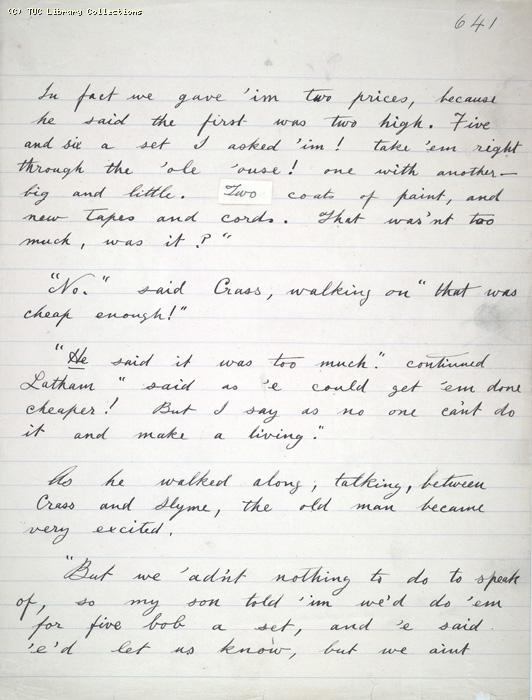 (C) TUC Library Collections
641
In fact we gave 'im two prices, because
he said the first was two high. Five
and six a set I asked 'im! take 'em right
through the 'ole 'ouse! one with another—
big and little. Two coats of paint, and
new tapes and cords. That was'nt too
much, was it?"
"No." said Crass, walking on "that was
cheap enough!"
"He said it was too much." continued
Latham "said as 'e could get 'em done
cheaper! But I say as no one can't do
it and make a living."
As he walked along, talking, between
Crass and Slyme, the old man became
very excited.
"But we 'adn't nothing to do to speak
of, so my son told 'im we'd do 'em
for five bob a set, and 'e said
'e'd let us know, but we aint